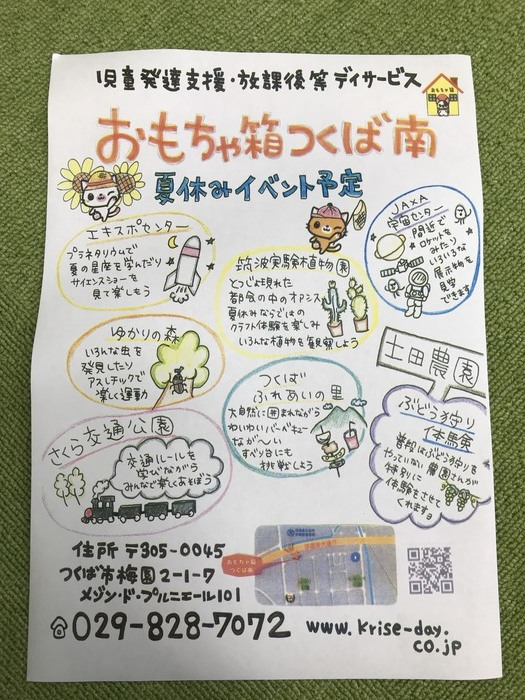 児童発達支援・放課後等デイサービス
おもちゃ箱
おもちゃ箱つくば南
夏休みイベント予定
エキスポセンター
プラネタリウムで
夏の星座を学んだり
サイエンスショーを
見て楽しもう
筑波実験植物園
とつじょ現れた
都会の中のオアシス
夏休みならではの
クラフト体験を楽しみ
いろんな植物を観察しよう
JAXA
宇宙センター
間近で
ロケットを
みたり
いろいろな
展示物を
見学
できます
ゆかりの森
いろんな虫を
発見したり
アスレチックで
楽しく運動
つくば
ふれあいの里
大自然に囲まれながら
わいわいバーベキュー
なが〜い
すべり台にも
挑戦しよう
土田農園
ぶどう狩り
体験
普段はぶどう狩りを
やっていない農園さんが
特別に
体験をさせて
くれますョ
さくら交通公園
交通ルールを
学びながら
みんなで楽しくあそぼう
住所 〒305-0045
つくば市梅園2-1-7
メゾン・ド・プルニエール101
おもちゃ箱
つくば南
029-828-7072
www.krise-day.
co.jp